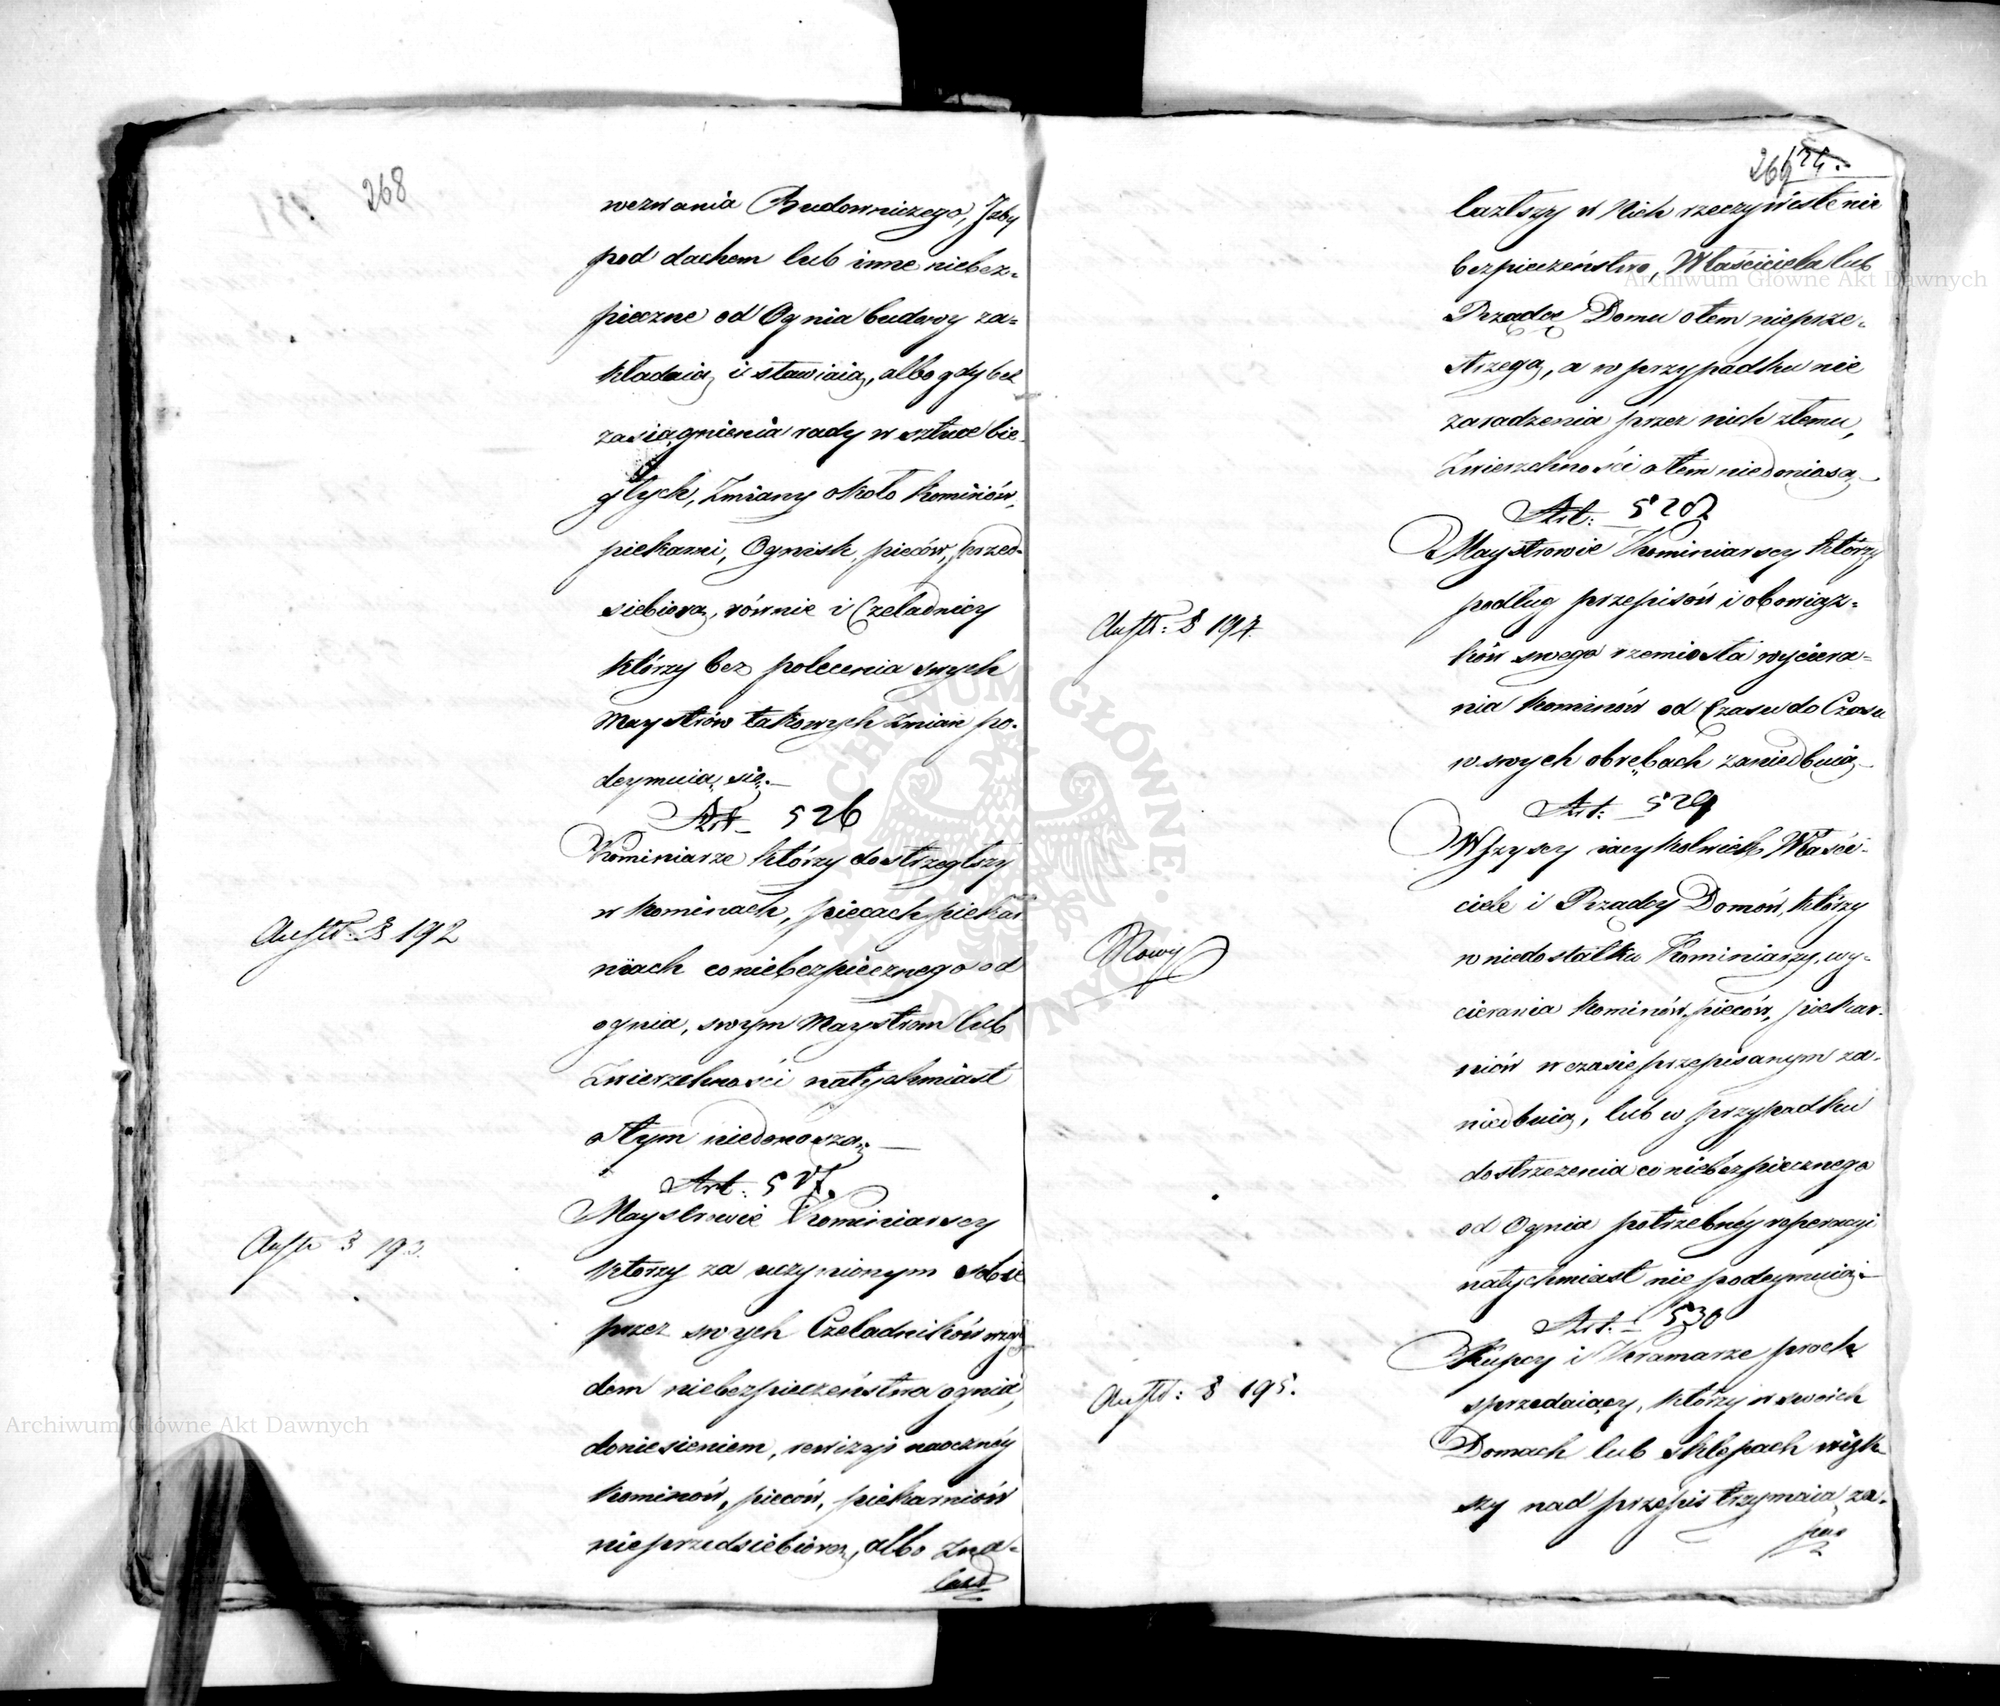 268
wezwania Budowniczego, Izby
pod dachem lub inne niebez-
pieczne od Ognia budowy za-
kładaią i stawiaią, albo gdy bez
zasiągnienia rady w sztuce bie-
głych, Zmiany około Kominów,
piekarni, Ognisk, pieców, przed-
siebiorą, równie i Czeladnicy
którzy bez polecenia swych
Maystrów takowych zmian po-
deymuią się.
Art. 526
Austr: § 192
Kominiarze którzy dostrzegłszy
w kominach, piecach piekar
niach co niebezpiecznego od
ognia, swym Maystrom lub
Zwierzchności natychmiast
o tym niedonoszą.
Art: 527.
Austr § 193.
Maystrowie Kominiarscy
którzy za uczynionym sobie
przez swych Czeladników wzglę
dem niebezpieczeństwa ognia,
doniesieniem, rewizyi naocznéy
kominów, pieców, piekarniów
nieprzedsiebiorą, albo zna-
lazł
269
lazłszy w Nich rzeczywiste nie
bezpieczeństwo, Właściciela lub
Rządcę Domu o tem nieprze-
strzegą, a w przypadku nie
zaradzenia przez nich złemu,
Zwierzchności o tem niedoniosą
Art: 528
Austr: § 194.
Maystrowie Kominiarscy którzy
podług przepisów i obowiąz-
ków swego rzemiosła wyciera-
nia kominów od Czasu do Czasu
w swych obrębach zaniedbuią
Art: 529
Nowy
Wszyscy iacykolwiek Właści-
ciele i Rządcy Domów, którzy
w niedostatku Kominiarzy, wy-
cierania kominów, pieców, piekar-
niów w czasie przepisanym za-
niedbuią, lub w przypadku
dostrzeżenia co niebezpiecznego
od Ognia potrzebnéy reperacyi
natychmiast nie podeymuią.
Art: 530
Austr: § 195.
Kupcy i Kramarze proch
sprzedaiący, którzy w swoich
Domach lub sklepach więk
szy nad przepis trzymaią za-
pas
Archiwum Główne Akt Dawnych
Archiwum Główne Akt Dawnych
ARCHIWUM GŁÓWNE AKT DAWNYCH